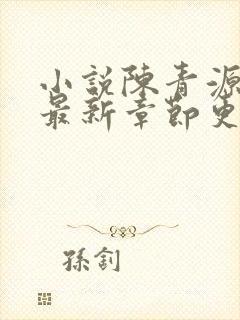 小説陳青源
最新章節更
孫釗